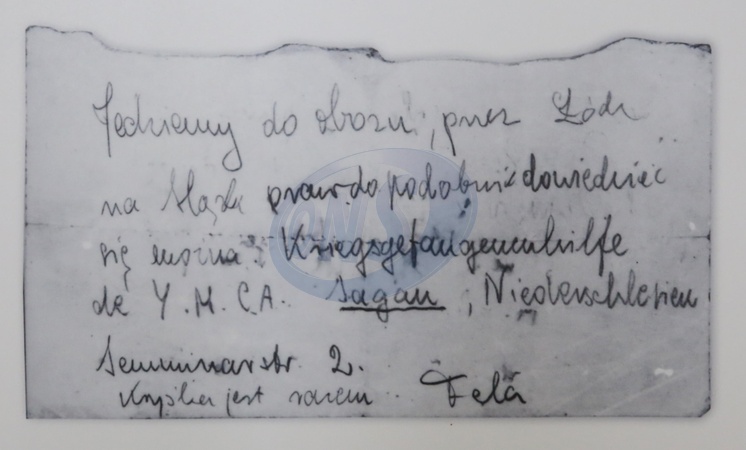 Jedziemy do obozu, przez Łódź
na Śląsk prawdopodobnie dowiedzieć
się można: Kriegsgefangenenhilfe
de Y.M.C.A. Sagan, Niederschlesien
Seminarstr 2.
Kryśka jest razem Fela